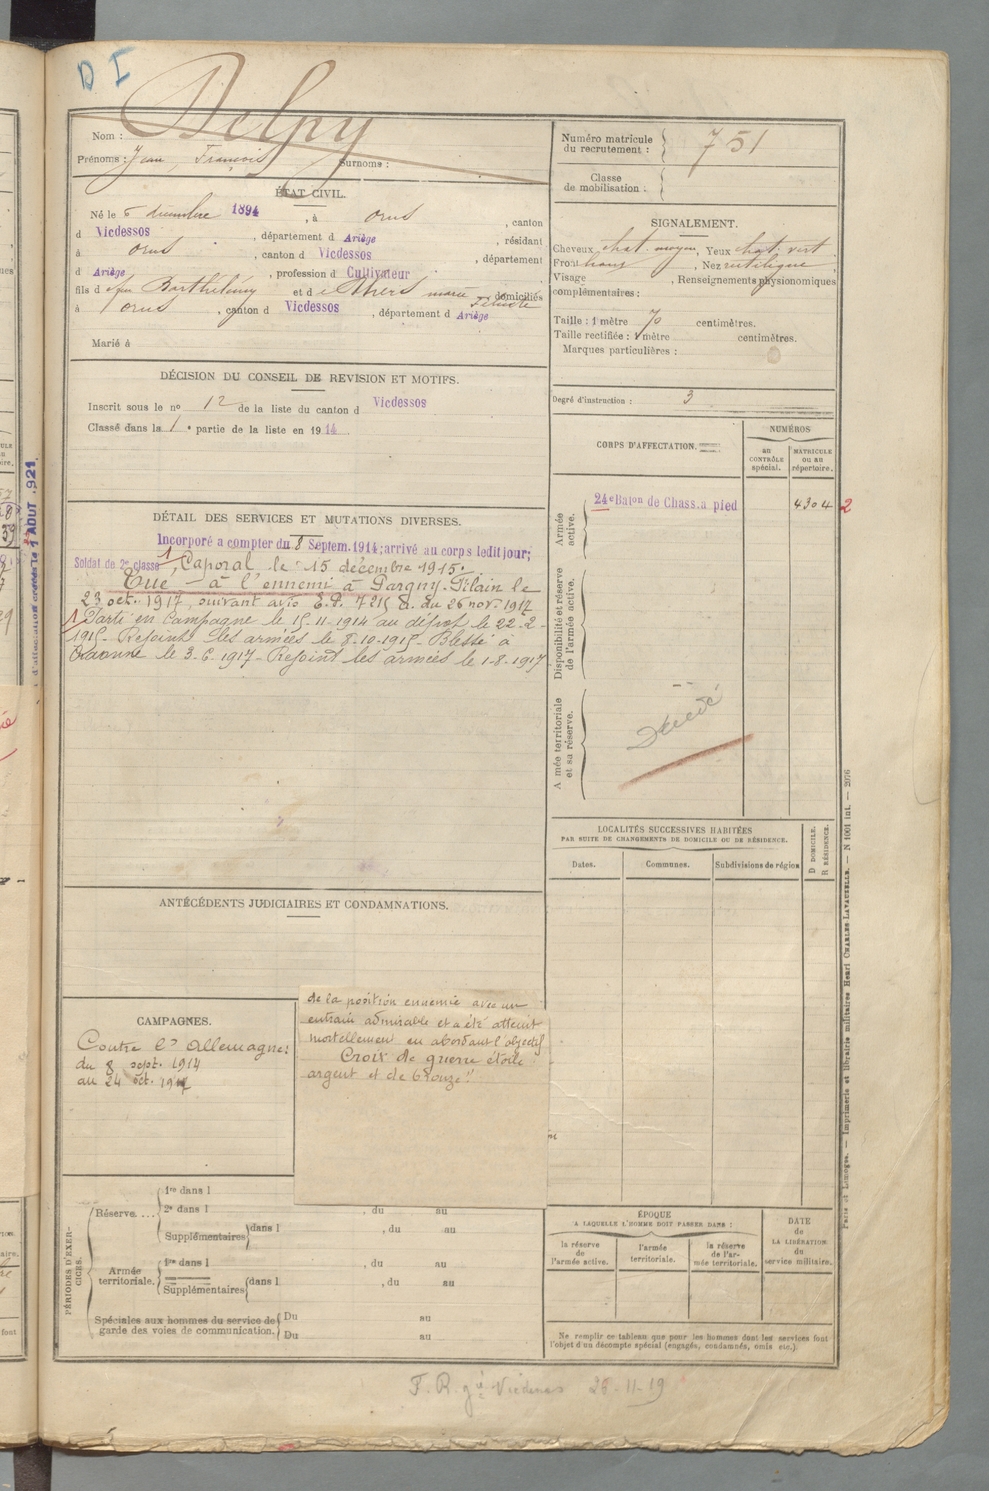 D I
Nom : Delpy
Prénoms : Jean, François Surnoms :
Numéro matricule du recrutement : 751
Classe de mobilisation :
ÉTAT CIVIL.
Né le 6 décembre 1894, à Orus, canton
d Vicdessos, département d Ariège, résidant
à Orus, canton d Vicdessos, département
d Ariège, profession d Cultivateur
fils d Barthélémy et d marie domiciliés
à Orus, canton d Vicdessos, département d Ariège
Marié à
SIGNALEMENT.
Cheveux chat. moyen, Yeux chat. vert
Front, Nez rectiligne
Visage, Renseignements physionomiques
complémentaires :
Taille : 1 mètre 70 centimètres.
Taille rectifiée : 1 mètre centimètres.
Marques particulières :
Degré d'instruction : 3
DÉCISION DU CONSEIL DE REVISION ET MOTIFS.
Inscrit sous le nº 12 de la liste du canton d Vicdessos
Classé dans la 1e partie de la liste en 1914
DÉTAIL DES SERVICES ET MUTATIONS DIVERSES.
Incorporé a compter du 8 Septem. 1914; arrivé au corps ledit jour;
Soldat de 2e classe 1, Caporal le 15 décembre 1915.
Tué à l'ennemi à Pargny-Filain le
23 oct. 1917, suivant avis du 26 nov. 1917
1 Parti en campagne le 15.11.1914 au dépôt le 22-2-
1915- Rejoint les armées le 8-10-1915- Blessé à
Craonne le 3.6.1917- Rejoint les armées le 1-8-1917
CORPS D'AFFECTATION.
NUMÉROS
AU CONTRÔLE spécial.
MATRICULE OU AU répertoire.
Armée active.
24e Baton de Chass. a pied 4304 2
Disponibilité et réserve de l'armée active.
A mée territoriale et sa réserve.
Décédé
LOCALITÉS SUCCESSIVES HABITÉES
PAR SUITE DE CHANGEMENTS DE DOMICILE OU DE RÉSIDENCE.
Dates. Communes. Subdivisions de région
D DOMICILE.
R RÉSIDENCE.
ANTÉCÉDENTS JUDICIAIRES ET CONDAMNATIONS.
CAMPAGNES.
Contre l'Allemagne:
du 8 sept. 1914
au 24 oct. 1917
de la position ennemie avec un
entrain admirable et a été atteint
mortellement en abordant l'objectif
Croix de guerre étoile
argent et de bronze"
PÉRIODES D'EXERCICES.
Réserve....
1re dans l
2e dans l, du au
Supplémentaires dans l, du au
Armée territoriale.
1re dans l, du au
Supplémentaires dans l, du au
Spéciales aux hommes du service de
garde des voies de communication.
Du au
Du au
ÉPOQUE
A LAQUELLE L'HOMME DOIT PASSER DANS :
la réserve de l'armée active.
l'armée territoriale.
la réserve de l'armée territoriale.
DATE de LA LIBÉRATION du service militaire.
Ne remplir ce tableau que pour les hommes dont les services font
l'objet d'un décompte spécial (engagés, condamnés, omis etc.).
Paris et Limoges. — Imprimerie et librairie militaires Henri CHARLES-LAVAUZELLE. — N 1001 int. — 2076
F. R. 26-11-19
1 AOUT 1921